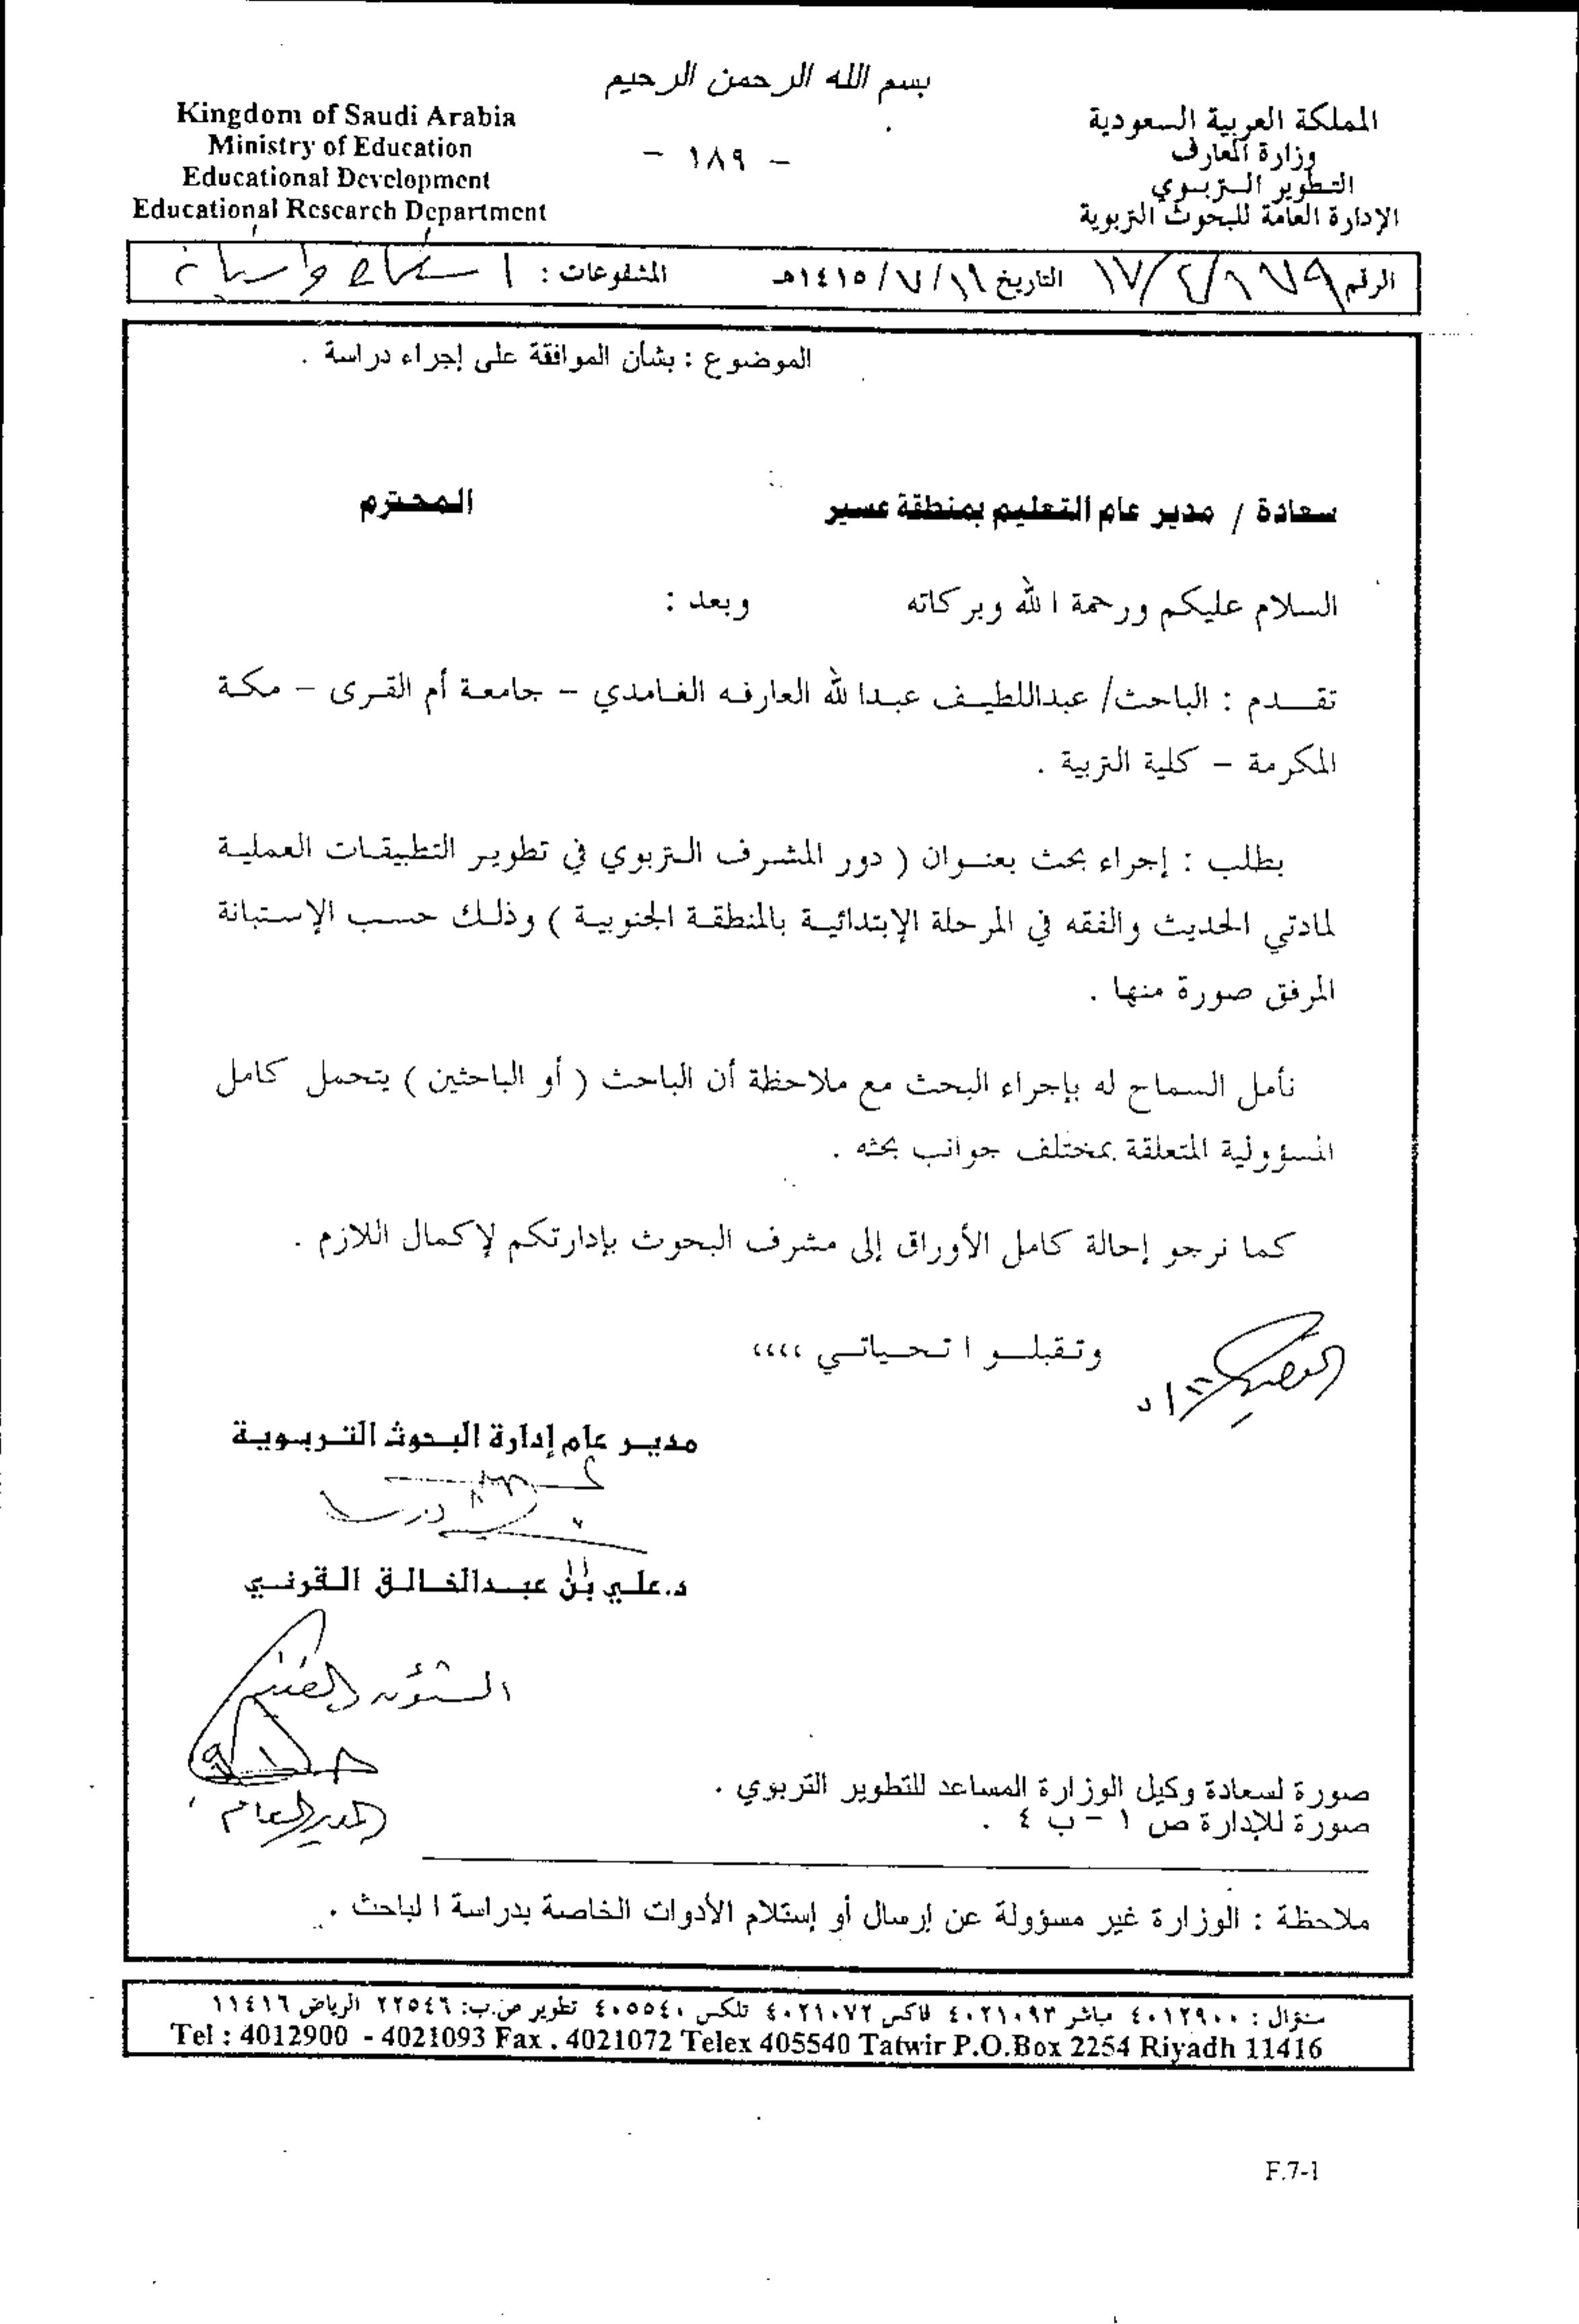 بسم الله الرحمن الرحيم
Kingdom of Saudi Arabia
Ministry of Education
Educational Development
Educational Research Department
- ١٨٩ -
المملكة العربية السعودية
وزارة المعارف
التطوير التربوي
الإدارة العامة للبحوث التربوية
الرقم التاريخ ١٦/٧/١٤١٥هـ المشفوعات :
الموضوع : بشأن الموافقة على إجراء دراسة .
سعادة / مدير عام التعليم بمنطقة عسير المحترم
السلام عليكم ورحمة الله وبركاته وبعد :
تقدم : الباحث/ عبداللطيف عبدالله العارفه الغامدي – جامعة أم القرى – مكة
المكرمة – كلية التربية .
بطلب : إجراء بحث بعنوان ( دور المشرف التربوي في تطوير التطبيقات العملية
لمادتي الحديث والفقه في المرحلة الإبتدائية بالمنطقة الجنوبية ) وذلك حسب الإستبانة
المرفق صورة منها .
نأمل السماح له بإجراء البحث مع ملاحظة أن الباحث ( أو الباحثين ) يتحمل كامل
المسؤولية المتعلقة بمختلف جوانب بحثه .
كما نرجو إحالة كامل الأوراق إلى مشرف البحوث بإدارتكم لإكمال اللازم .
وتقبلوا تحياتي ،،،،
مدير عام إدارة البحوث التربوية
د.علي بن عبدالخالق القرني
المدير العام
صورة لسعادة وكيل الوزارة المساعد للتطوير التربوي .
صورة للإدارة ص ١ – ب ٤ .
ملاحظة : الوزارة غير مسؤولة عن إرسال أو إستلام الأدوات الخاصة بدراسة الباحث .
سنؤال : ٤٠١٢٩٠٠ مباشر ٤٠٢١٠٩٣ فاكس ٤٠٢١٠٧٢ تلكس ٤٠٥٥٤٠ تطوير ص.ب: ٢٢٥٤٦ الرياض ١١٤١٦
Tel : 4012900 - 4021093 Fax . 4021072 Telex 405540 Tatwir P.O.Box 2254 Riyadh 11416
F.7-1